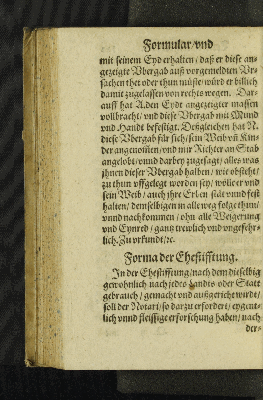 Formular/vnd
mit seinem Eyd erhalten/ daß er diese an-
gezeigte Vbergab auß vorgemeldten Vr-
sachen thet oder thun müste/ würd er billich
damit zugelassen von rechts wegen. Dar-
auff hat A. den Eydt angezeigter massen
vollbracht/ vnd diese Vbergab mit Mund
vnd Handt befestigt. Deßgleichen hat N.
diese Vbergab für sich/ sein Weib vñ Kin-
der angenom̃en/ vnd mir Richter an Stab
angelobt/ vnnd darbey zugesagt/ alles was
jhnen dieser Vbergab halben/ wie obsteht/
zu thun vffgelegt worden sey/ wölle er vnd
sein Weib/ auch jhre Erben stät vnnd fest
halten/ demselbigen in alle weg folge thun/
vnnd nachkommen/ ohn alle Weigerung
vnd Eynred/ gantz trewlich vnd vngefehr-
lich. Zu vrkundt/ ꝛc.
Forma der Ehestifftung.
In der Ehestifftung/ nach dem dieselbig
gewohnlich nach jedes Landts oder Statt
gebrauch/ gemacht vnd außgericht wirdt/
soll der Notari/ so darzu erfordert/ eygent-
lich vnnd fleissige erforschung haben/ nach
der-